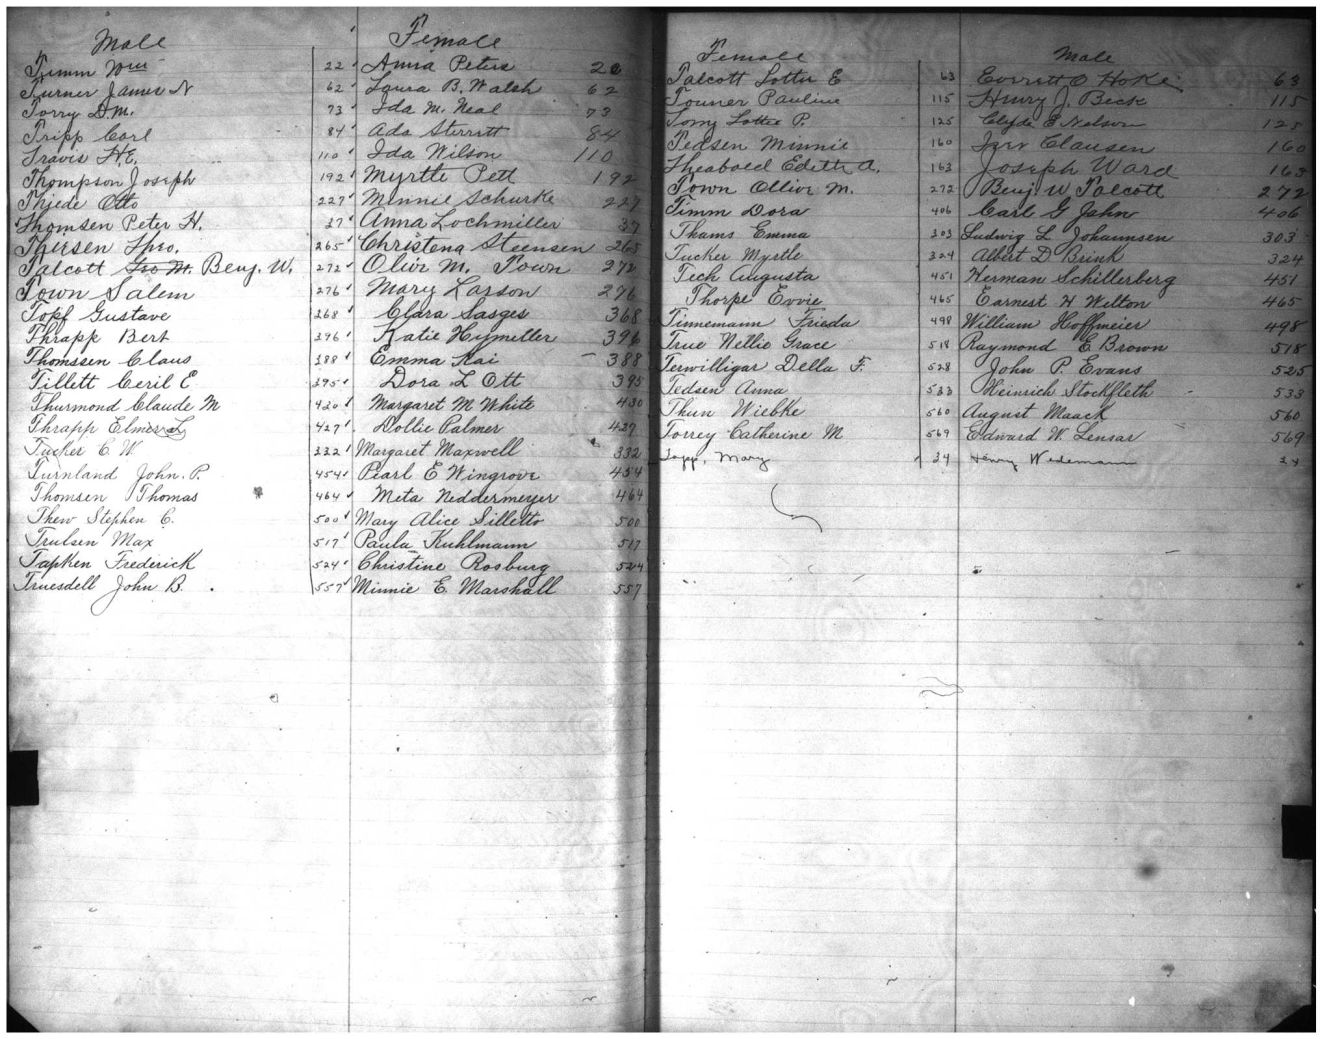 Male Female
Timm Wm 22 Anna Peters 20
Turner James N 62 Laura B. Walsh 62
Torry D.M. 73 Ida M. Neal 73
Tripp Carl 84 Ada Sterritt 84
Travis H.E. 110 Ida Wilson 110
Thompson Joseph 192 Myrtle Pett 192
Thiede Otto 227 Minnie Schurke 227
Thomsen Peter H. 37 Anna Lochmiller 37
Theisen Theo. 265 Christena Steensen 265
Talcott Geo M. Benj. W. 272 Olive M. Town 272
Town Salem 276 Mary Larson 276
Topf Gustave 268 Clara Sasges 368
Thrapp Bert 396 Katie Hymiller 396
Thomssen Claus 388 Emma Kai 388
Tillett Ceril E 395 Dora L Ott 395
Thurmond Claude M 420 Margaret M White 430
Thrapp Elmer L 427 Dollie Palmer 427
Tucker C. W. 332 Margaret Maxwell 332
Turnland John. P. 454 Pearl E Wingrove 454
Thomsen Thomas 464 Meta Neddermeyer 464
Thew Stephen C. 500 Mary Alice Silletto 500
Trulsen Max 517 Paula Kuhlmann 517
Tapken Frederick 524 Christine Rosburg 524
Truesdell John B. 557 Minnie E. Marshall 557
Female Male
Talcott Lottie E 63 Everett O Hoke 63
Touner Pauline 115 Henry J. Beck 115
Lottie P. 125 Clyde E Nelson 125
Tedsen Minnie 160 Clausen 160
Theaboled Edith A. 163 Joseph Ward 163
Town Ollive M. 272 Benj W Talcott 272
Timm Dora 406 Carl G Jahn 406
Thams Emma 303 Ludwig L Johannsen 303
Tucker Myrtle 324 Albert D Brink 324
Tech Augusta 451 Herman Schillerberg 451
Thorpe Evvie 465 Earnest H Welton 465
Tinnemann Frieda 498 William Hoffmeier 498
True Nellie Grace 518 Raymond E Brown 518
Terwilligar Della F. 528 John P. Evans 525
Tedsen Anna 533 Heinrich Stockfleth 533
Thun Wiebke 560 August Maack 560
Torrey Catherine M 569 Edward W. Lensar 569
Topp, Mary 34 Henry Wedemann 34